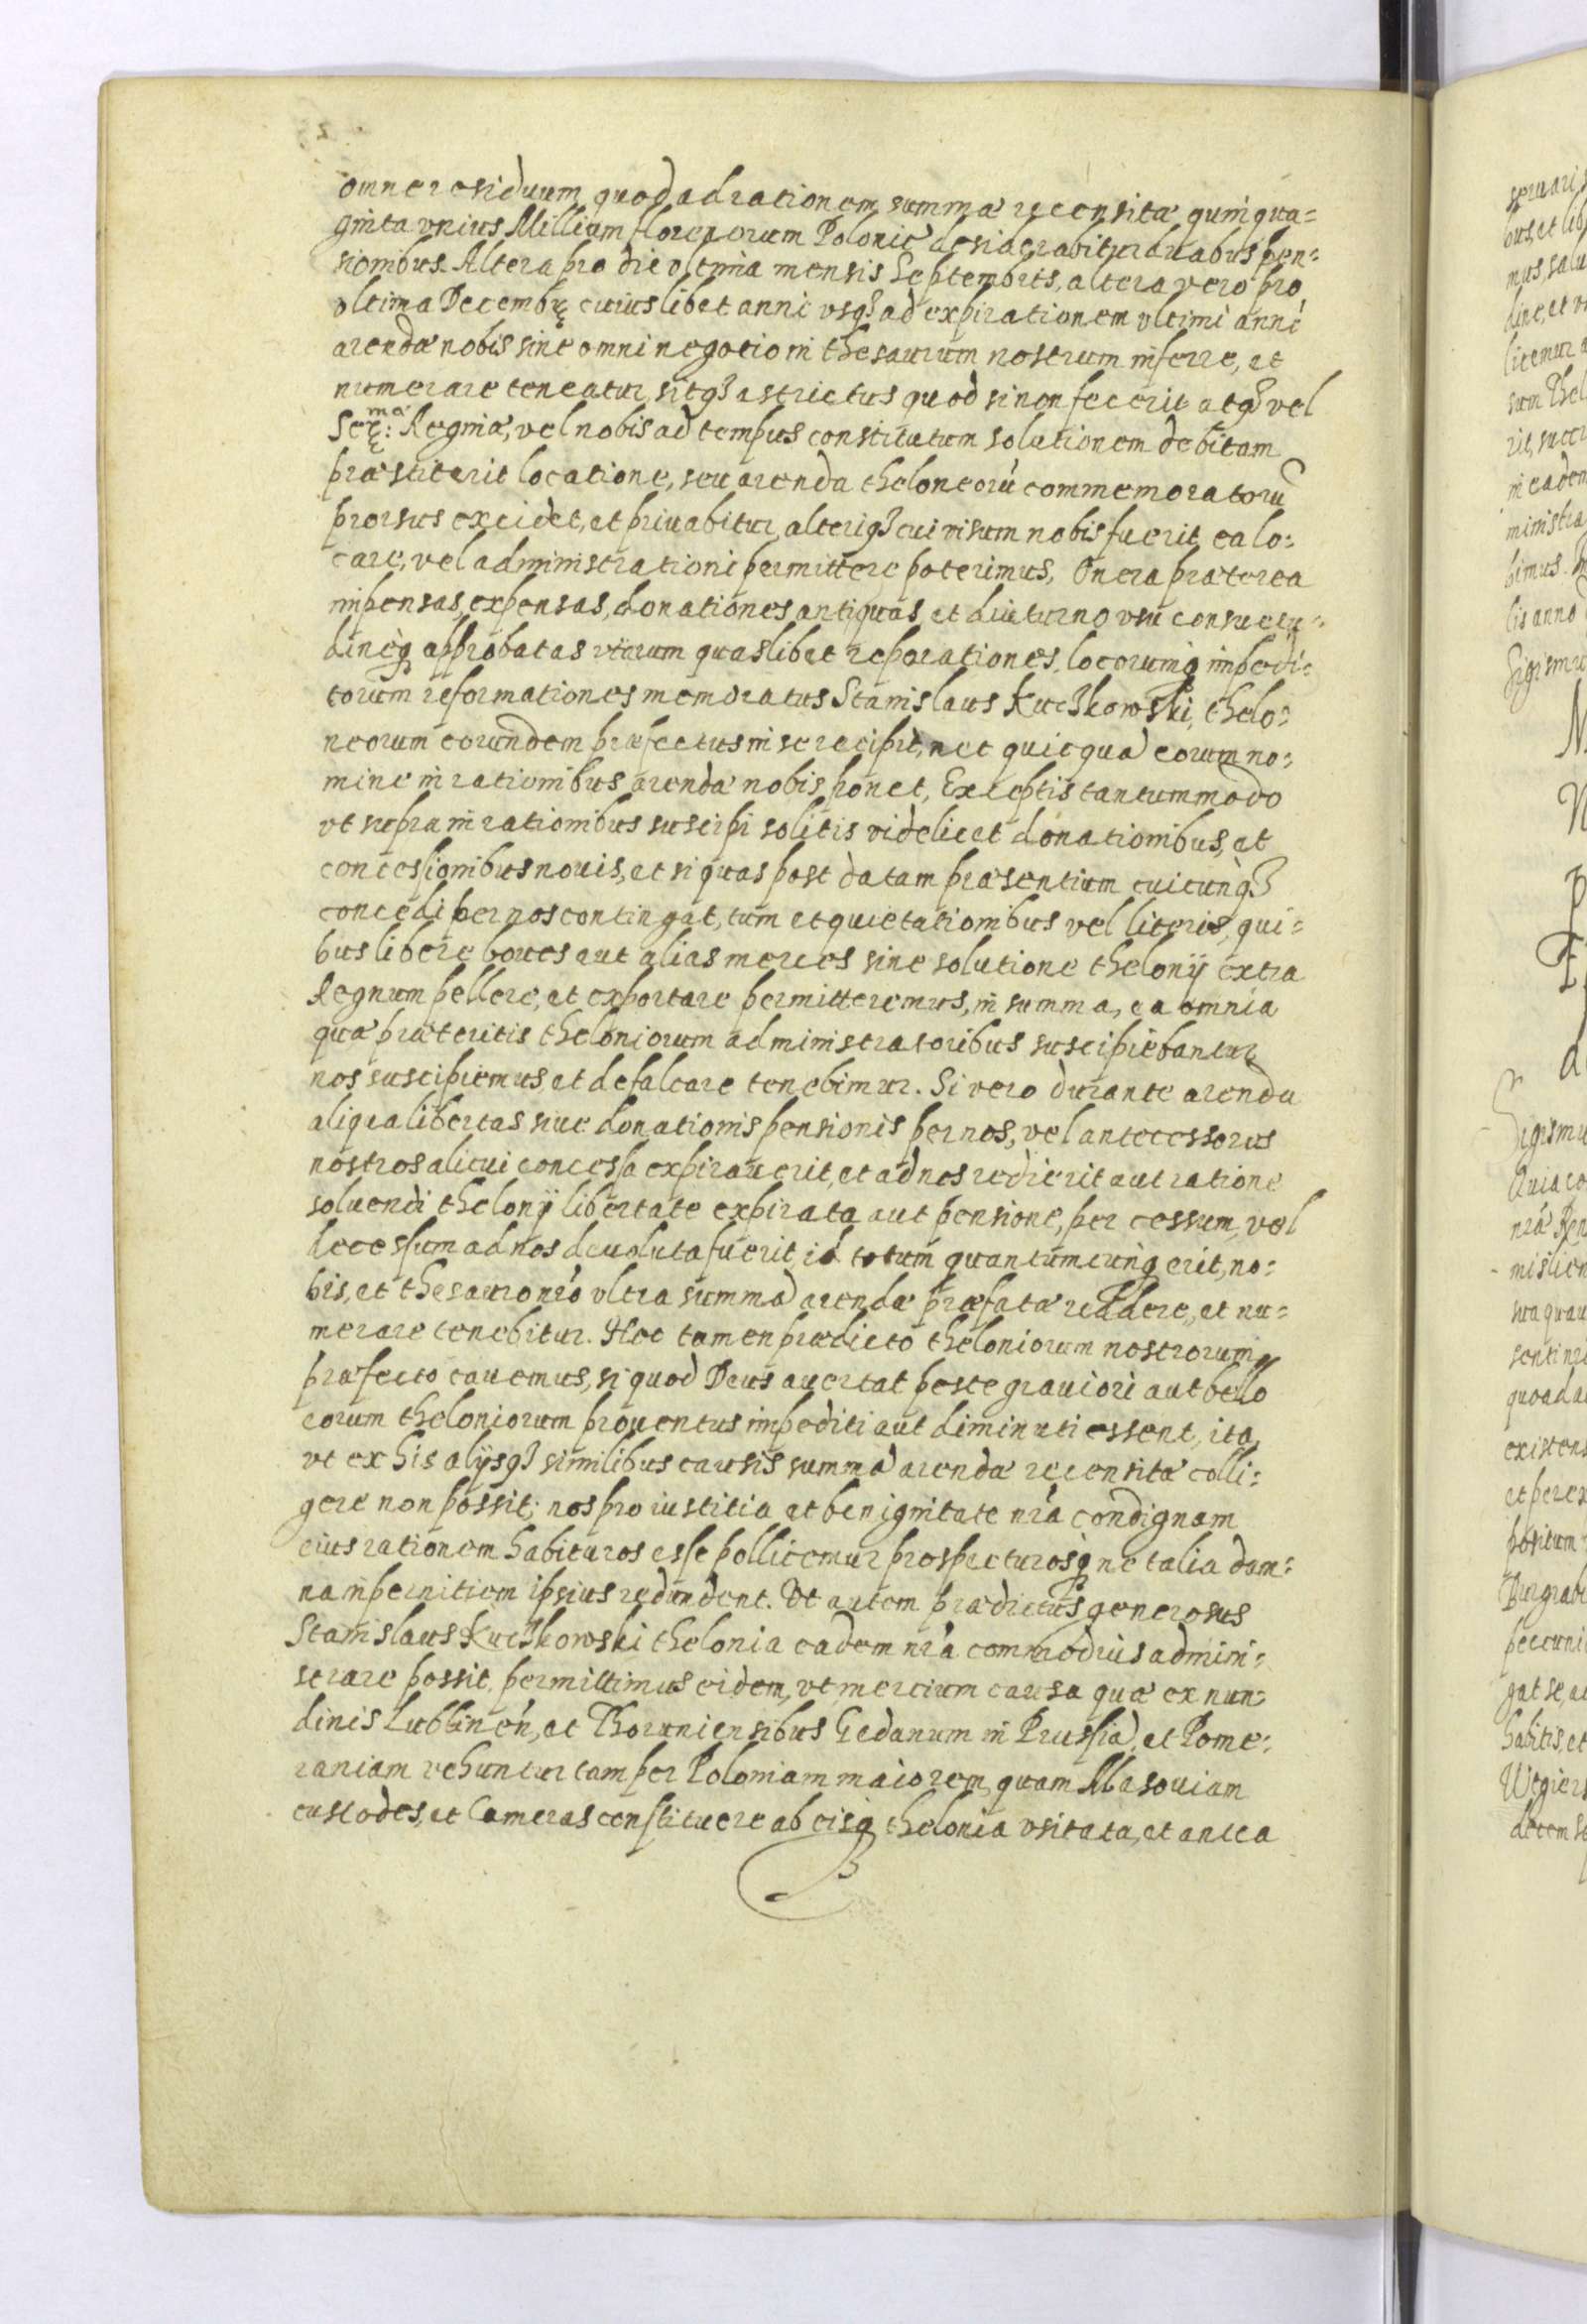 omne residuum quod ad rationem summæ recensitæ quinqua=
ginta unius Millium florenorum Polonic̃ desiderabitur duabus pen=
sionibus. Altera pro die ultima mensis Septembris, altera vero pro
ultima Decembrę cuiuslibet anni usq3 ad expirationem ultimi anni
arendæ nobis sine omni negotio in thesaurum nostrum inferre, et
numerare teneatur, sitq3 astrictus quod si non fecerit atq3 vel
Serę:mæ Reginæ, vel nobis ad tempus constitutum solutionem debitam
præstiterit locatione, seu arenda theloneorũ commemoratorũ
prorsus excidet, et privabitur, alteriq3 cui visum nobis fuerit ea lo=
care, vel administrationi permittere poterimus. Onera præterea
impensas, expensas, donationes antiquas, et diuturno usu consuetu=
dineq approbatas viarum quaslibet reparationes, locorumq impedi=
torum reformationes memoratus Stanislaus Kuc3kowski, thelo=
neorum eorundem præfectus in se recipit, nec quicquã eorum no=
mine in rationibus arendæ nobis ponet, Exceptis tantummodo
ut supra in rationibus suscipi solitis videlicet donationibus, et
concessionibus novis, et si quas post datam præsentium cuicunq3
concedi per nos contingat, tum et quietationibus vel literis, qui=
bus libere boves aut alias merces sine solutione thelonij extra
Regnum pellere, et exportare permitteremus, in summa, ea omnia
quæ præteritis theloniorum administratoribus suscipiebantur
nos suscipiemus, et defalcare tenebimur. Si vero durante arenda
aliqua libertas sive donationis pensionis per nos, vel antecessores
nostros alicui concessa expiraverit, et ad nos redierit aut ratione
solvendi thelonij libertate expirata aut pensione, per cessum, vel
decessum ad nos devoluta fuerit, id totum quantumcunq erit, no=
bis, et thesauro nr̃o ultra summã arendæ præfatæ reddere, et nu=
merare tenebitur. Hoc tamen prædicto theloniorum nostrorum
præfecto cavemus, si quod Deus avertat peste graviori aut bello
eorum theloniorum proventus impediti aut diminuti essent, ita
ut ex his alijsq3 similibus causis summã arendæ recensitæ colli=
gere non possit; nos pro iustitia et benignitate nr̃a condignam
eius rationem habituros esse pollicemur prospecturosq ne talia dam=
na in pernitiem ipsius redundent. Ut autem prædictus generosus
Stanislaus Kuc3kowski thelonia eadem nr̃a commodius admini=
strare possit, permittimus eidem, ut mercium causa quæ ex nun=
dinis Lublineñ, et Thoruniensibus Gedanum in Prussiã, et Pome=
raniam vehuntur tam per Poloniam maiorem, quam Masoviam
custodes, et Cameras constituere ab eisq thelonia usitata, et antea